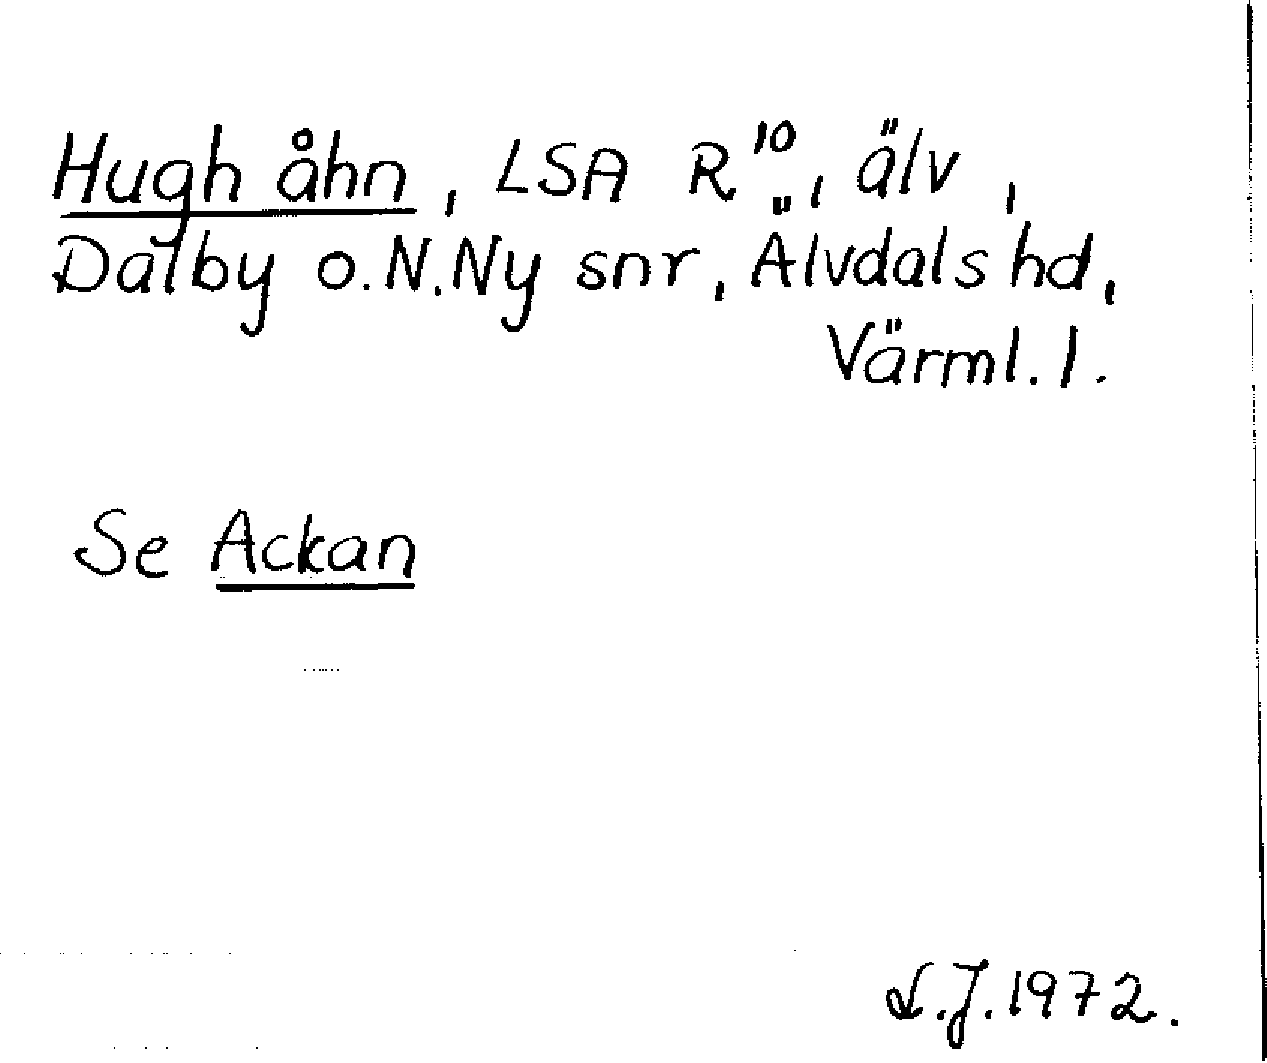 Hugh åhn, LSA R¹⁰, älv,
Dalby o. N. Ny snr, Älvdals hd,
Värml. l.
Se Ackan
S.J. 1972.